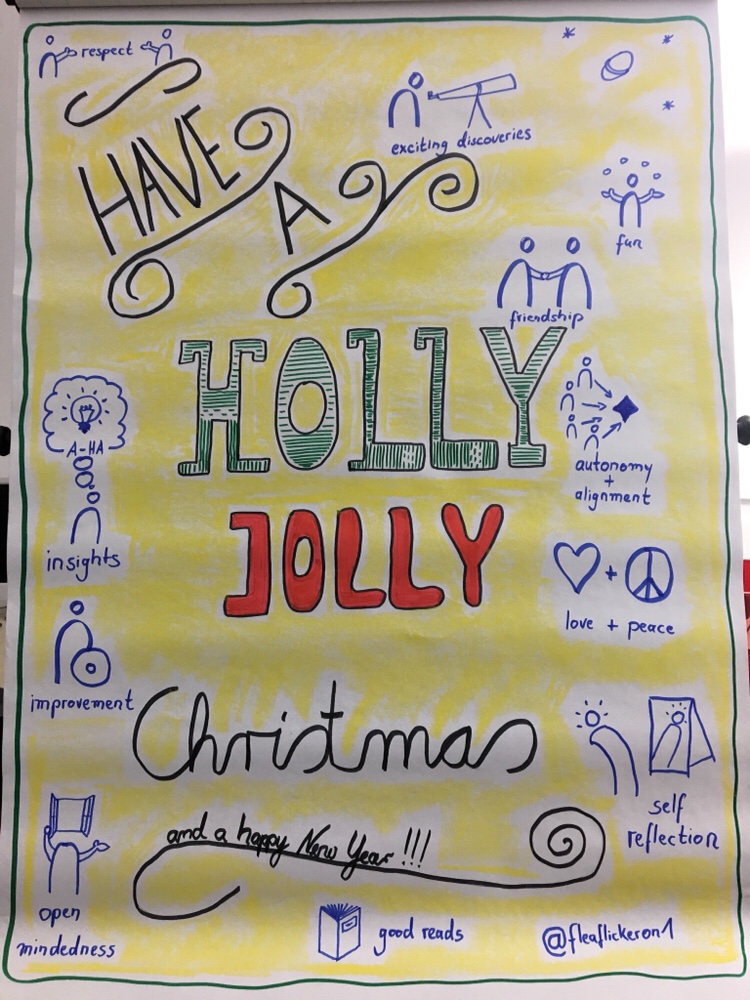 respect
HAVE
A
exciting discoveries
fun
friendship
HOLLY
A-HA
insights
autonomy
+
alignment
JOLLY
+
love + peace
improvement
Christmas
self
reflection
and a happy New Year !!!
open
mindedness
good reads
@fleaflickeron1